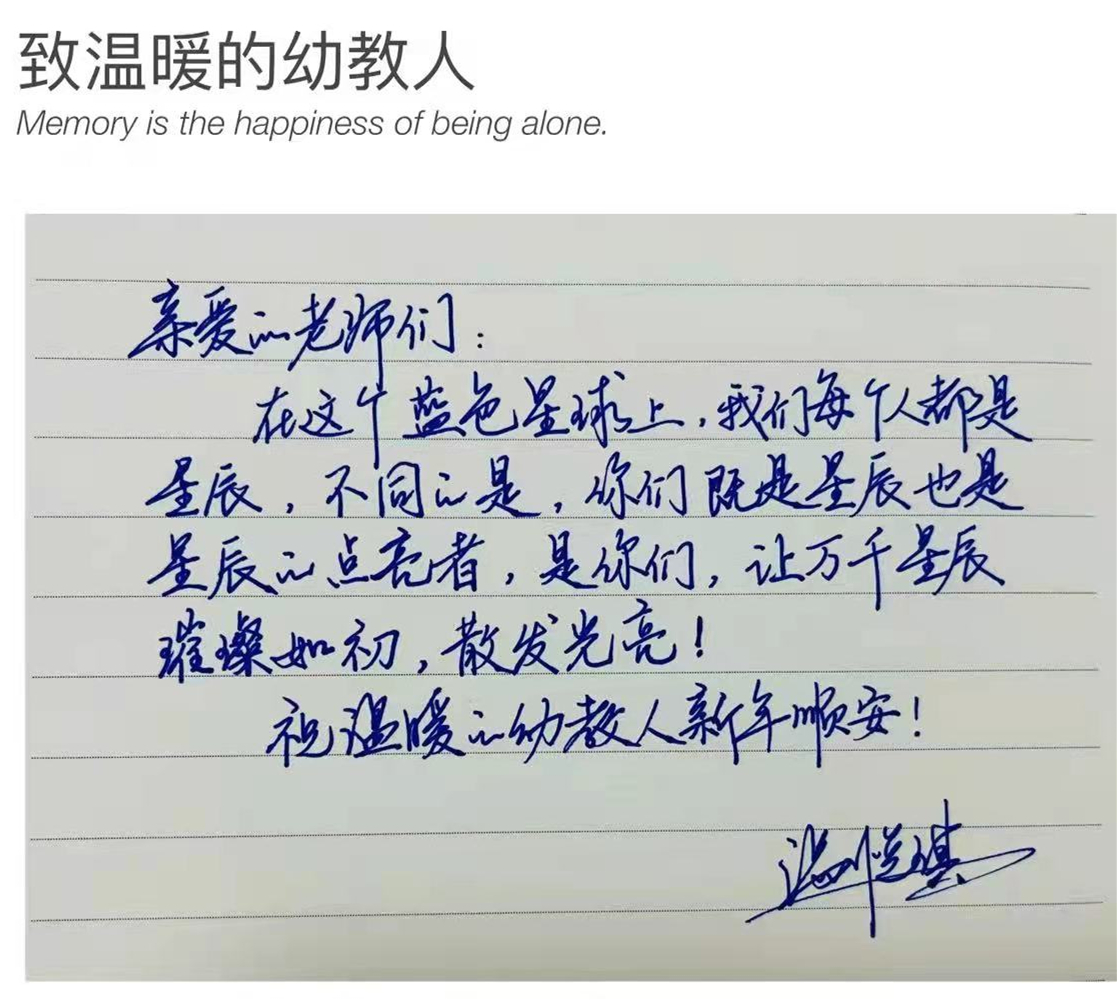 致温暖的幼教人
Memory is the happiness of being alone.
亲爱的老师们：
在这个蓝色星球上，我们每个人都是
星辰，不同的是，你们既是星辰也是
星辰的点亮者，是你们，让万千星辰
璀璨如初，散发光亮！
祝温暖的幼教人新年顺安！